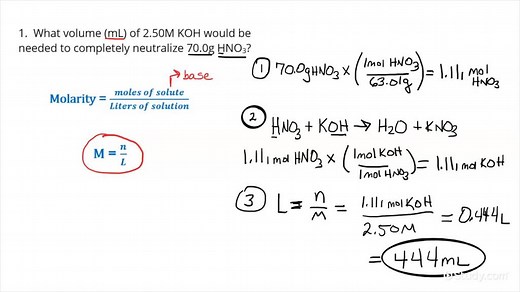 1. What volume (mL) of 2.50M KOH would be
needed to completely neutralize 70.0g HNO₃?
base
Molarity = moles of solute / Liters of solution
M = n / L
① 70.0g HNO₃ × (1mol HNO₃ / 63.01g) = 1.111 mol HNO₃
② HNO₃ + KOH → H₂O + KNO₃
1.111 mol HNO₃ × (1mol KOH / 1mol HNO₃) = 1.111 mol KOH
③ L = n / M = 1.111 mol KOH / 2.50M = 0.444L
= 444mL